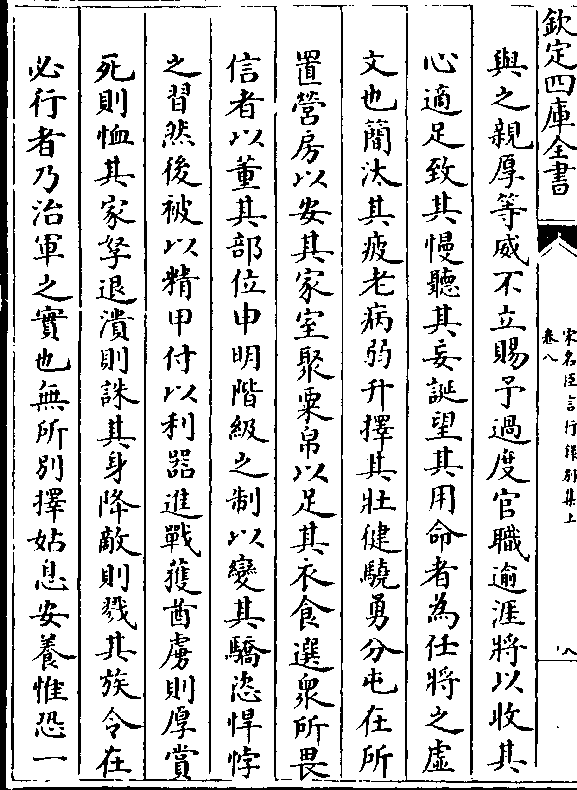 欽定四庫全書
宋名臣言行錄别集上
卷八
八
與之親厚等威不立賜予過度官職逾涯將以收其
心適足致其慢聽其妄誕望其用命者為任將之虛
文也簡汰其疲老病弱升擇其壯健驍勇分屯在所
置營房以安其家室聚粟帛以足其衣食選衆所畏
信者以董其部位申明階級之制以變其驕恣悍悖
之習然後被以精甲付以利器進戰獲酋虜則厚賞
死則恤其家孥退潰則誅其身降敵則戮其族令在
必行者乃治軍之實也無所别擇姑息安養惟恐一